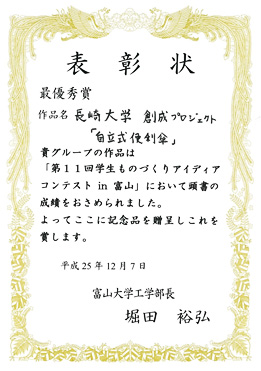 表彰状
最優秀賞
作品名 長崎大学 創成プロジェクト
「自立式便利傘」
貴グループの作品は
「第11回学生ものづくりアイディア
コンテスト in 富山」において頭書の
成績をおさめられました。
よってここに記念品を贈呈しこれを
賞します。
平成25年12月7日
富山大学工学部長
堀田 裕弘